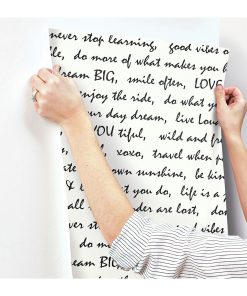 never stop learning, good vibes o
le, do more of what makes you h
dream BIG, smile often, LOVE
enjoy the ride, do what y
ur day dream, live Loud
YOU tiful, wild and fr
xoxo, travel when p
own sunshine, be kin
& t you do, life is a
all nder are lost, don
ver sto
do mo
eam BIG,